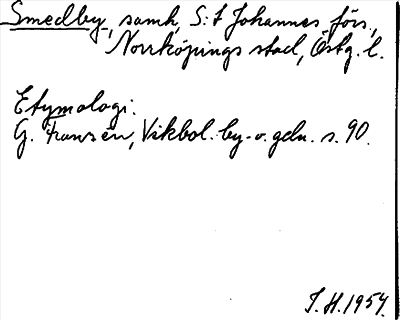 Smedby, samh, S:t Johannes förs,
Norrköpings stad, Östg. l.
Etymologi:
G. Fransén, Vikbol. by- o. gdn. s. 90.
I. H. 1954.